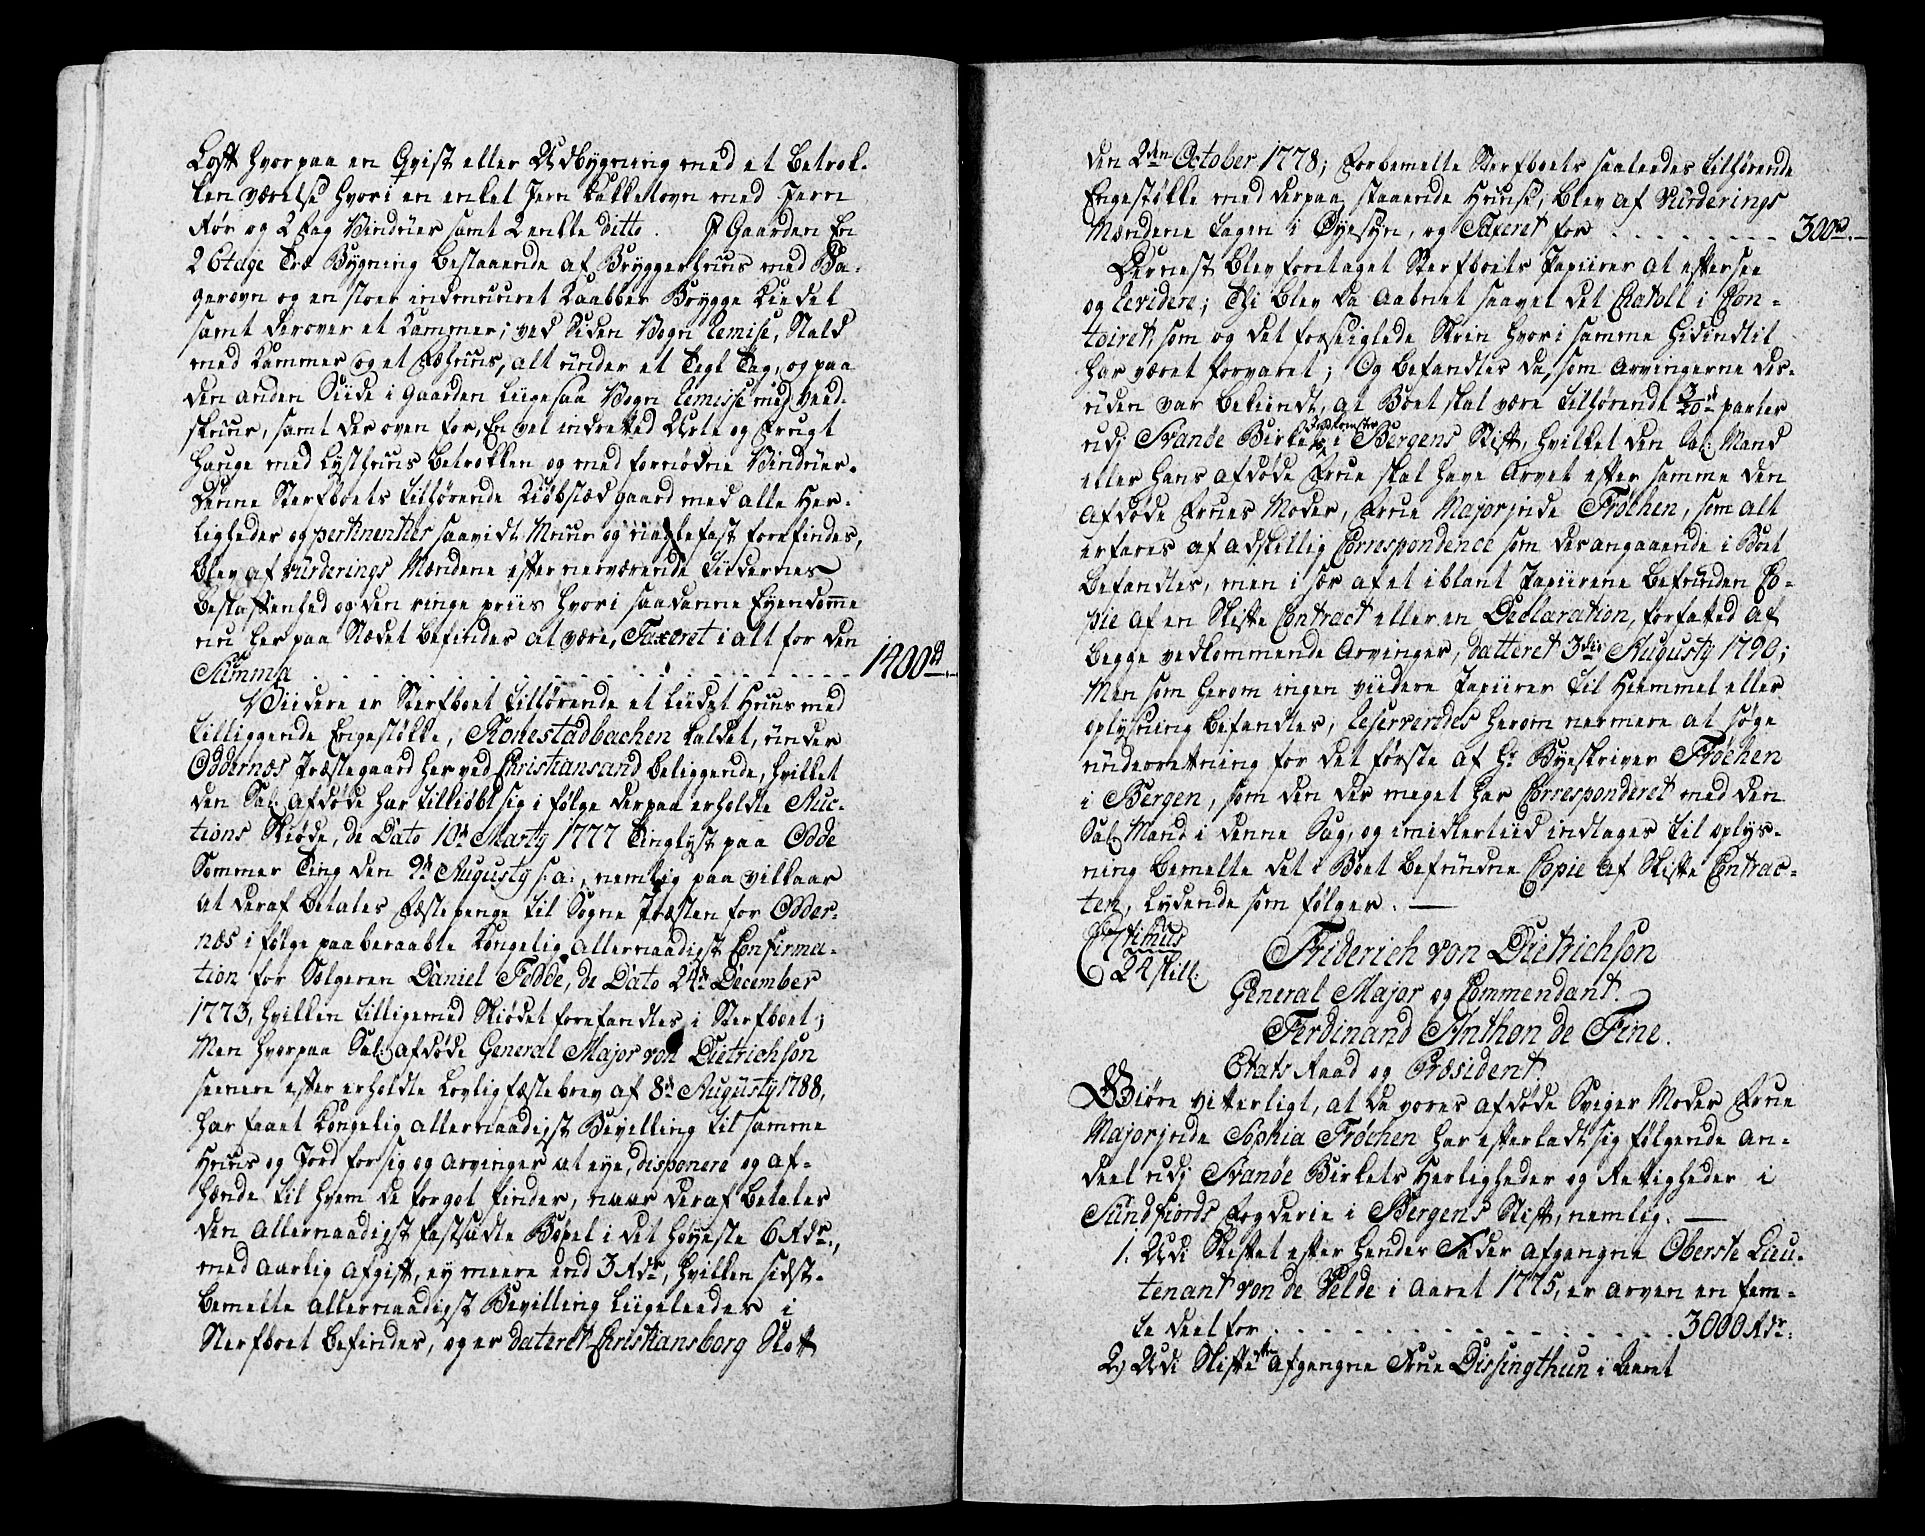 Loft hvorpaa en Qvist eller Udbygning med et betrok-
ken værelse hvori en enkel Jern Kakkelovn med Jern
Rør og 2 fag Vinduer samt 2 enkle ditto. I Gaarden En
2 Etage Træ Bygning bestaaende af Bryggerhuus med Ba-
gerovn og en stoer indmuuret Kaabber Brygge Kiedel
samt derover et Kammer; ved Siden Vogn Remise, Stald
med Kammer og et Fæhuus, alt under et Tegl Tag, og paa
den anden Siide i Gaarden liigesaa Vogn Remisse med Veed-
skuur, samt der oven for, En vel indretted Urte og Frugt
Hauge med Lysthuus betrokken og med fornødne Vinduer.
Denne Sterfboets tilhørende Kiøbstæd gaard med alle Her-
ligheder og pertinentier saavidt Muur og naglefast forefindes,
blev af Vurderings Mændene efter nerværende Tiidernes
Beskaffenhed og den ringe priis hvori saadanne Eyendomme
nu her paa Stædet befindes at være, Taxeret i alt for den
Summa . . . . . . . . . . 1400 rd
Viidere er Sterfboet tilhørende et lidet Huus med
tilliggende Engestøkke, Konestadbachen kaldet, under
Oddernæs Præstegaard her ved Christiansand beliggende, hvilket
den Sal: afdøde har tilkiøbt sig i følge derpaa erholdte Auc-
tions Skiøde, de Dato 10de Marty 1777 Tinglyst paa Odde
Sommer Ting den 9de Augusty s: a:, nemlig paa vilkaar
at deraf betales Fæstepenge til Sogne Præsten for Odder-
næs i følge paaberaabte Kongelig allernaadigst Confirma-
tion for Sælgeren Daniel Fedde, de Dato 24de December
1773, hvilken tilligemed Skiødet forefandtes i Sterfboet;
Men hvorpaa Sal: afdøde General Major von Dietrichson
senere efter erholdte lovlig fæstebrev af 8de Augusty 1788,
har faaet Kongelig allernaadigst Bevilling til samme
Huus og Jord for sig og arvinger at eye, disponere og af-
hænde til hvem de forgot finder, naar deraf betales
den allernaadigst fastsadte Bøxel i det høyeste 6 Rdr.,
med aarlig afgift, ey meere end 3 Rdr, hvilken sidst-
bemelte allernaadigst Bevilling liigeleedes i
Sterfboet befindes, og er dateret Christiansborg Slott
den 2den October 1778; forbemelte Sterfboets saaledes tilhørende
Engestøkke med derpaa staaende Huus, blev af Vurderings
Mændene tagen i Øyesyn, og Taxeret for . . . . . . . . 300 rd
Dernest blev foretaget Sterfboets Papiirer at eftersee
og Revidere; Thi blev da aabnet saavel det Chatoll i Con-
toiret, som og det forseiglede Skrin hvori samme hidindtil
har været forvaret; Og befandtes da, som arvingerne der-
uden var bekiendt, at Boet skal være tilhørende 3/20de parter
udj Svanøe Birkes Indkomster i Bergens Stift, hvilket den Sal: Mand
eller hans afdøde Frue skal have Arvet efter samme den
afdøde Frues Moder, Frue Majorjnde Frøchen, som alt
erfares af adskillig Correspondence som derangaaende i Boet
befandtes, men i sær af et iblant Papiirene befunden Co-
pie af en Skifte Contract eller en Declaration, forfatted af
begge vedkommende Arvinger, datteret 3die Augusty 1790;
Men som herom ingen viidere Papiirer til Hiemmel eller
oplysning befandtes, Reserveredes herom nermere at søge
underretning for det første af Hr. Byeskriver Frøchen
i Bergen, som den der meget har Corresponderet med den
Sal: Mand i denne Sag, og imidlertiid indtages til oplys-
ning bemelte det i Boet befundne Copie af Skifte Contrac-
ten, lydende som følger. —
24 skill.
Friderich von Dietrichson
General Major og Commendant.
Ferdinand Anthon de Fine.
Etats Raad og Præsident
Giøre vitterligt, at da vores afdøde Sviger Moder Frue
Majorjnde Sophia Frøchen har efterladt sig følgende an-
deel udj Svanøe Birkets Herligheder og Rettigheder i
Sundfiords Fogderie i Bergens Stift, nemlig. —
1. Udi Skiftet efter hendes Fader afgangne Oberste Lieu-
tenant von de Velde i Aaret 1775, er arven en fem-
te deel for . . . . . . . . . . 3000 Rdr:
2) Udi Skifte efter afgangne Frue Dissingthun i Aaret